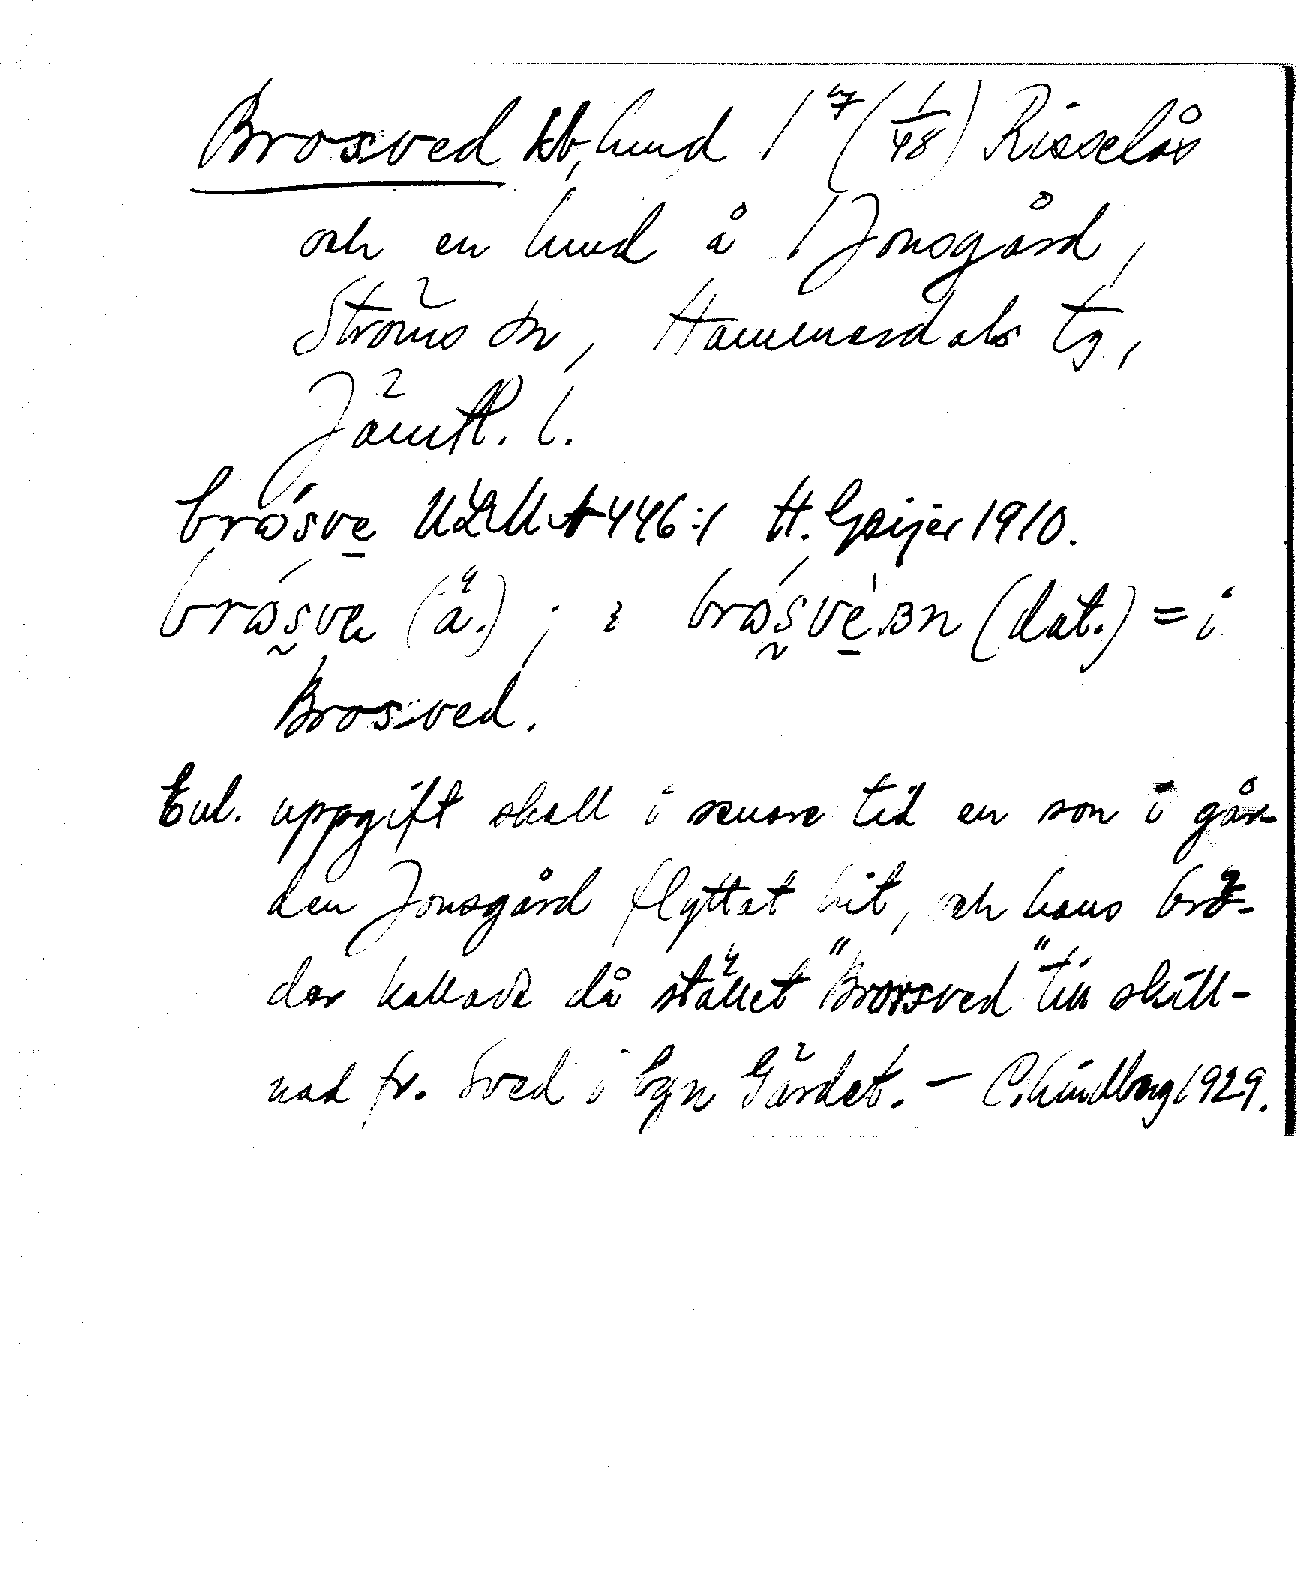 Brosved kb, hmd 1⁷ (1/48) Risselås
och en hmd å 1 Jonsgård,
Ströms sn, Hammerdals tg,
Jämtl. l.
brósve ULMA 446:1 H. Geijer 1910.
brósve (ä.); i brósvèn (dat.) = i
Brosved.
Enl. uppgift skall i senare tid en son i går-
den Jonsgård flyttat hit, och hans brö-
der kallade då stället "Brorsved" till skill-
nad fr. Sved i byn Gärdet. – C. Lindberg 1929.